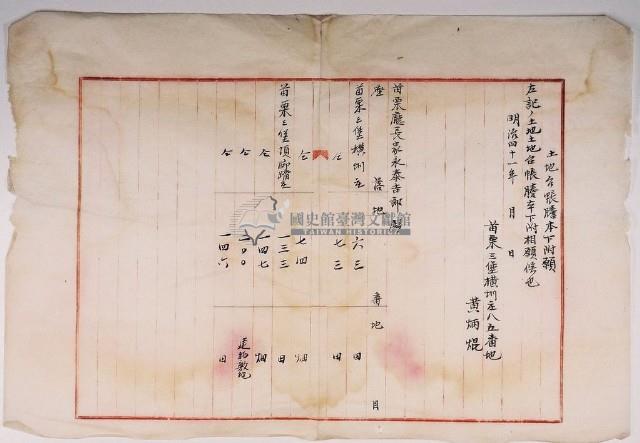 土地台帳謄本下附願
左記ノ土地土地台帳謄本下附相願候也
明治四十一年 月 日
苗栗三堡橫圳庄八五番地
黃炳焜
苗栗廳長家永泰吉郎殿
座 落 地 番 地 目
苗栗三堡橫圳庄 六三 田
仝 七三 田
仝 七四 畑
苗栗三堡頂店庄 一三三 田
仝 一四七 畑
仝 二〇〇 建物敷地
仝 一四六 田
國史館臺灣文獻館
TAIWAN HISTORICA